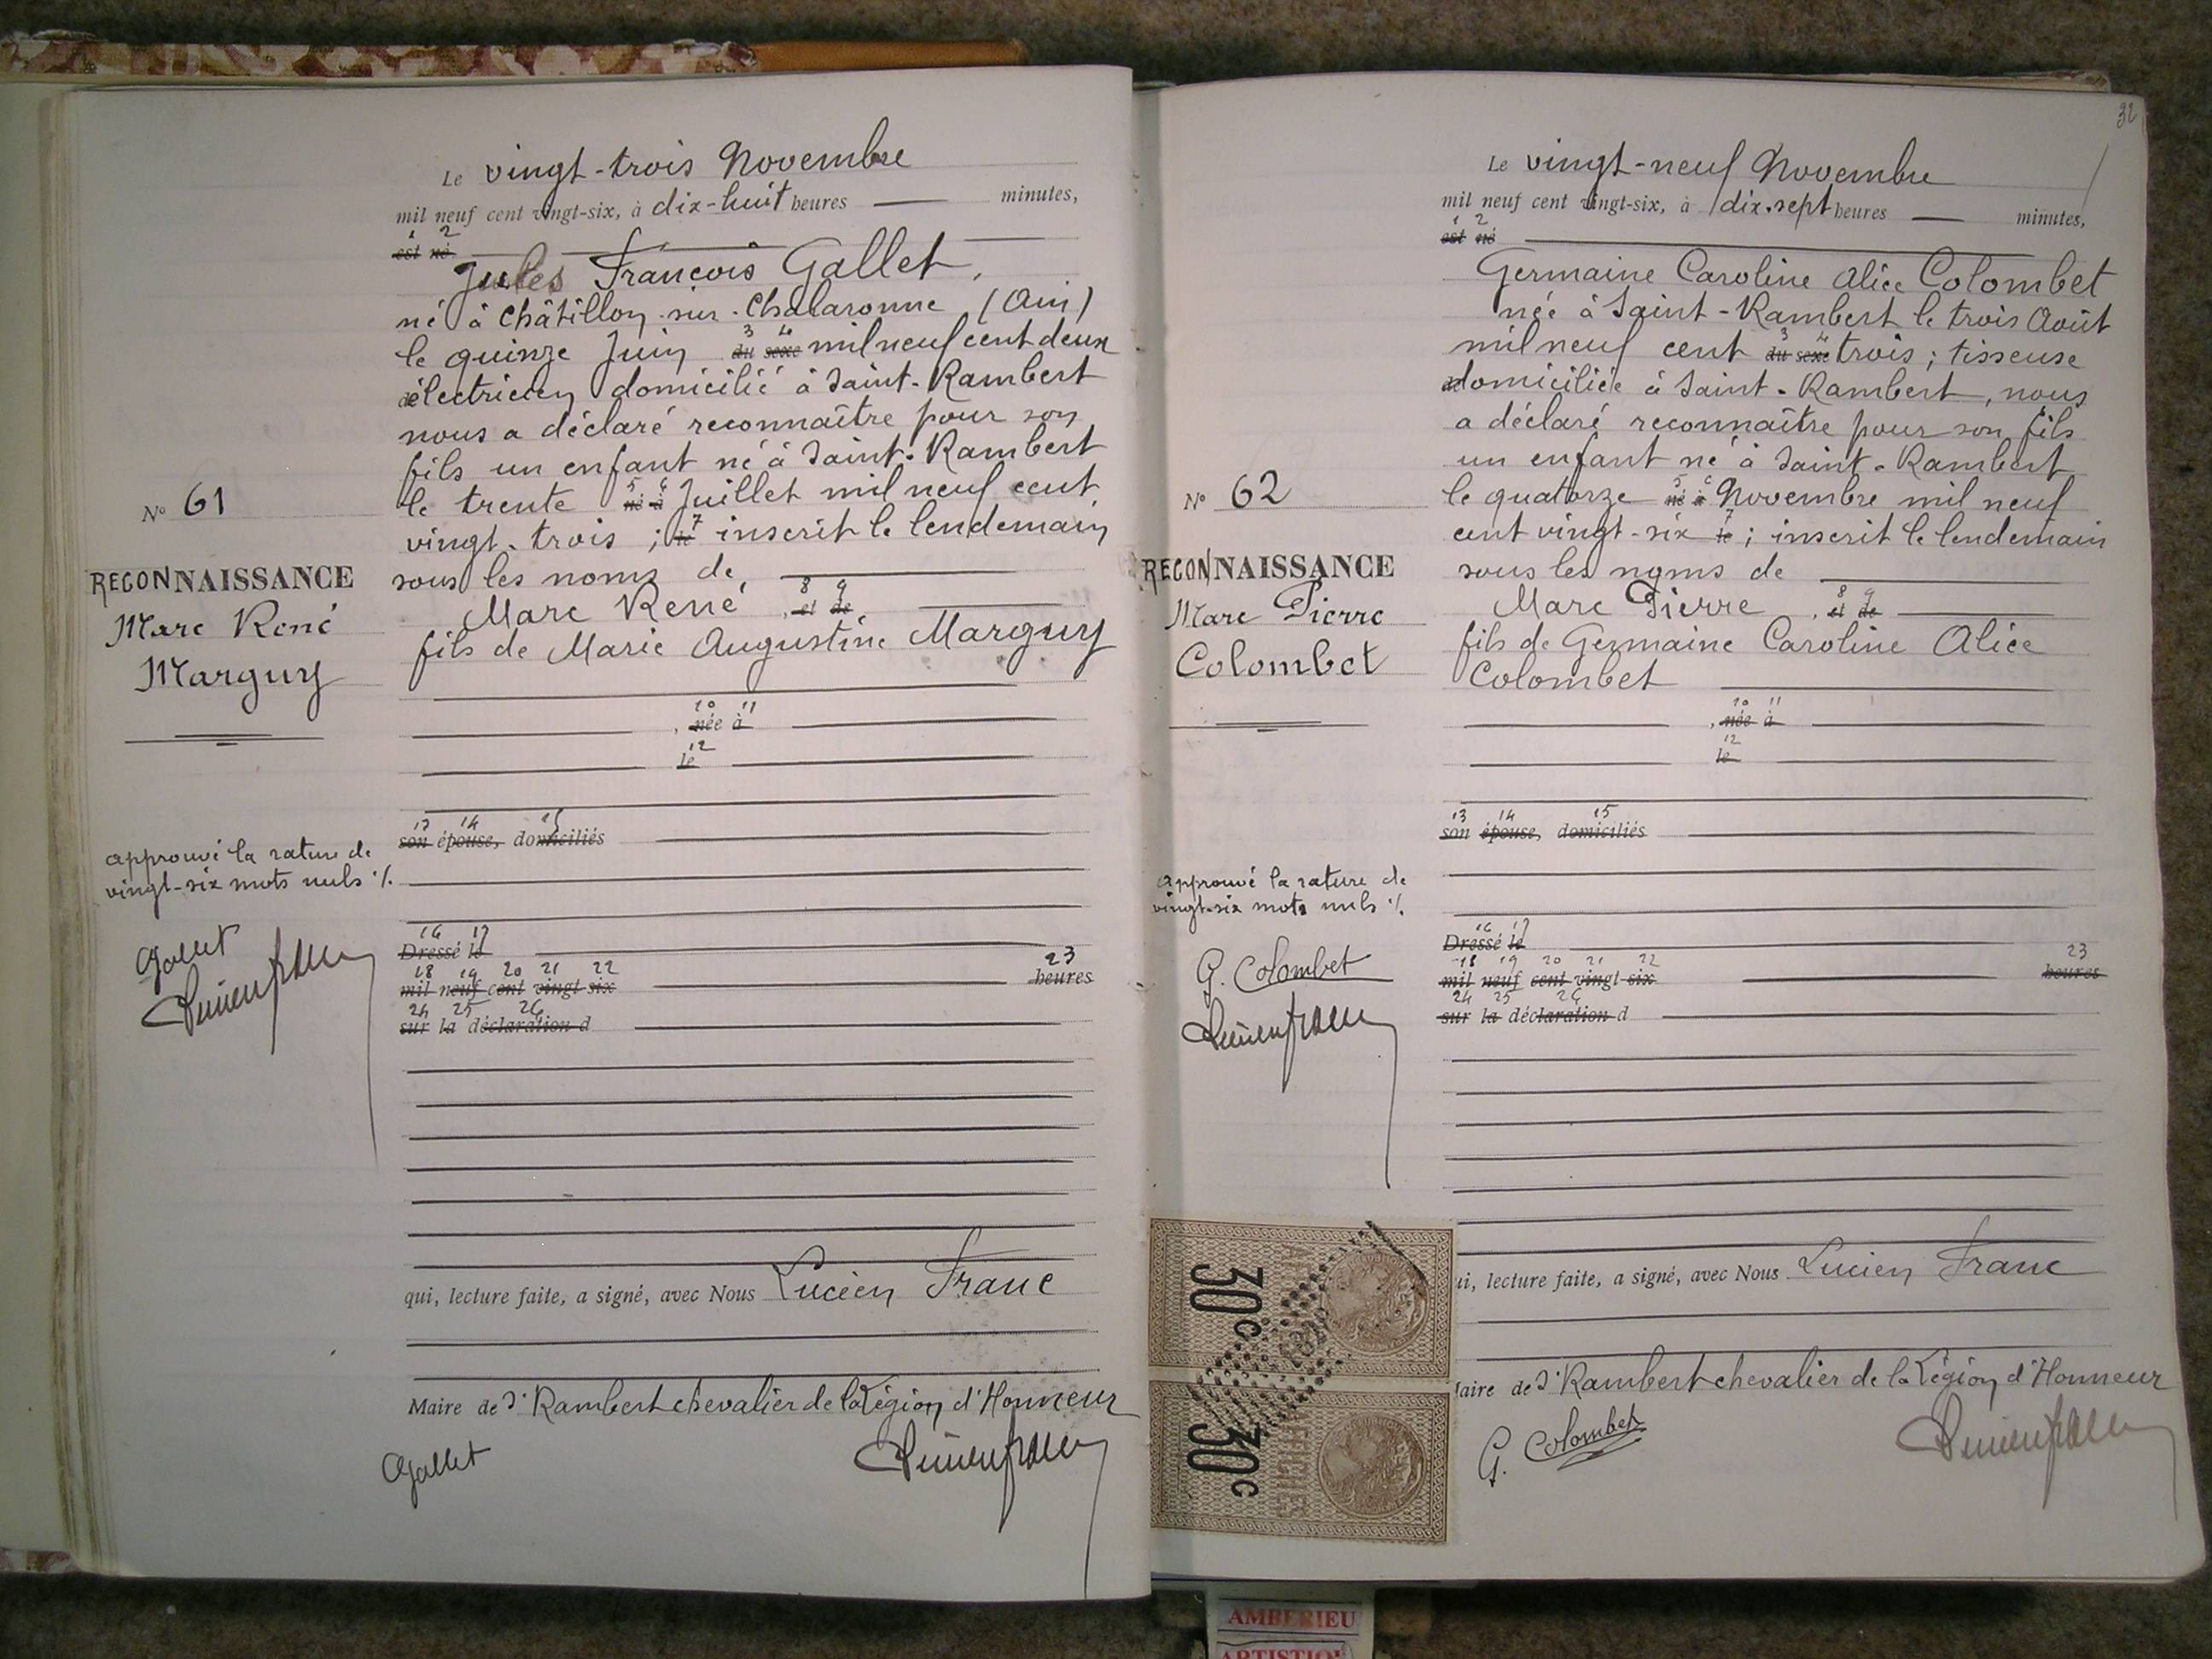 Le vingt-trois Novembre
mil neuf cent vingt-six, à dix-huit heures — minutes,
1 2
est né
Jules François Gallet,
né à Châtillon-sur-Chalaronne (Ain)
3 4
le quinze Juin du sexe mil neuf cent deux
électricien domicilié à Saint-Rambert
nous a déclaré reconnaître pour son
fils un enfant né à Saint-Rambert
5 6
le trente né à Juillet mil neuf cent
7
vingt-trois ; le inscrit le lendemain
sous les noms de
8 9
Marc René, et de
fils de Marie Augustine Marguy
10 11
, née à
12
le
13 14 15
son épouse, domiciliés
16 17
Dressé le
18 19 20 21 22 23
mil neuf cent vingt-six heures
24 25 26
sur la déclaration d
qui, lecture faite, a signé, avec Nous Lucien Franc
Maire de St Rambert chevalier de la Légion d'Honneur
Gallet
Lucien Franc
N° 61
RECONNAISSANCE
Marc René
Marguy
approuvé la rature de
vingt-six mots nuls ./.
Gallet
Lucien Franc
32
Le vingt-neuf Novembre
mil neuf cent vingt-six, à dix-sept heures — minutes,
1 2
est né
Germaine Caroline Alice Colombet
née à Saint-Rambert le trois Août
3 4
mil neuf cent du sexe trois ; tisseuse
domiciliée à Saint-Rambert, nous
a déclaré reconnaître pour son fils
un enfant né à Saint-Rambert
5 6
le quatorze né à Novembre mil neuf
7
cent vingt-six le ; inscrit le lendemain
sous les noms de
8 9
Marc Pierre, et de
fils de Germaine Caroline Alice
Colombet
10 11
, née à
12
le
13 14 15
son épouse, domiciliés
16 17
Dressé le
18 19 20 21 22 23
mil neuf cent vingt-six heures
24 25 26
sur la déclaration d
ui, lecture faite, a signé, avec Nous Lucien Franc
aire de St Rambert chevalier de la Légion d'Honneur
G. Colombet
Lucien Franc
N° 62
RECONNAISSANCE
Marc Pierre
Colombet
Approuvé la rature de
vingt-six mots nuls ./.
G. Colombet
Lucien Franc
30c
30c
AMBERIEU
ARTISTIQUE